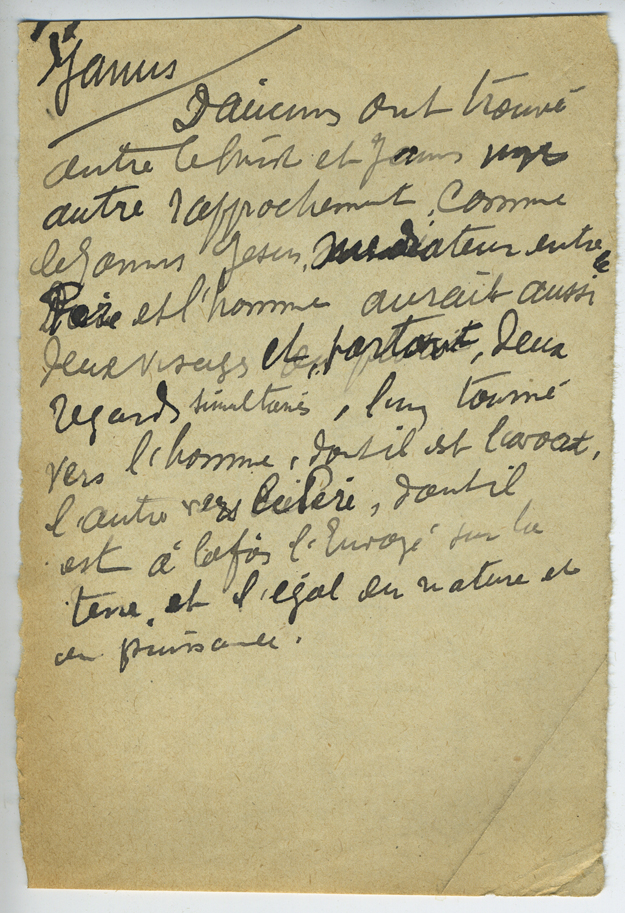 Janus
D'aucuns ont trouvé
entre le Christ et Janus une
autre rapprochement. Comme
le Janus Jesus, médiateur entre le
Père et l'homme aurait aussi
deux visages et, partant, deux
regards simultanés, l'un tourné
vers l'homme, dont il est l'avocat,
l'autre vers le Père, dont il
est à la fois l'Envoyé sur la
terre, et l'égal en nature et
en puissance.